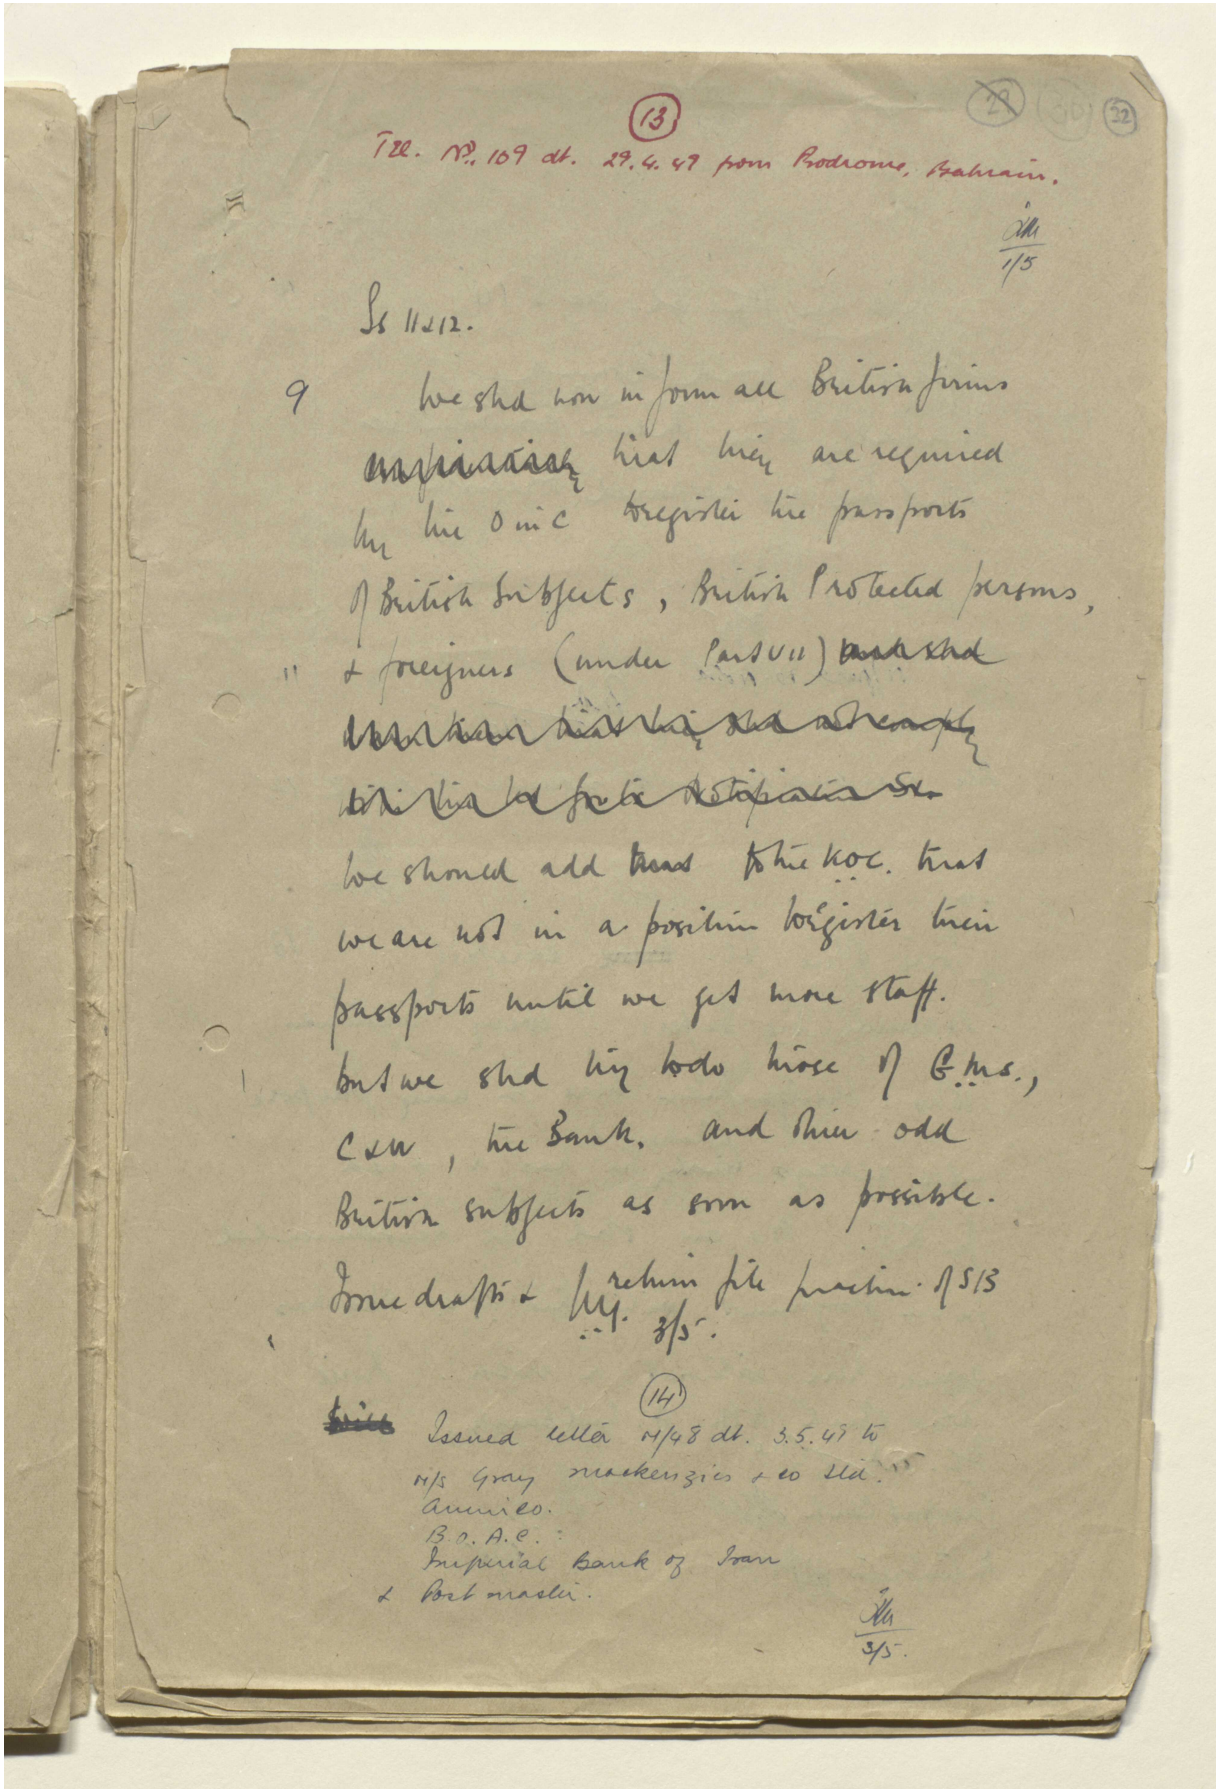 29 30 32
13
Tel. No. 109 dt. 29.4.49 from Prodrome, Bahrain.
1/5
Ss 11 & 12.
9 We shd now inform all British firms
that they are required
by the O in C to register the passports
of British Subjects, British Protected persons,
& foreigners (under Part VII) and shd
that they shd not comply
We should add that to the KOC. that
we are not in a position to register their
passports until we get more staff.
but we shd try to do those of G.M.S.,
C & W, the Bank, and other odd
British subjects as soon as possible.
Issue drafts & return file
3/5.
14
Issued letter M/48 dt. 3.5.49 to
M/S Gray Mackenzies & Co Ltd.
Aminco.
B.O.A.C.
Imperial Bank of Iran
& Post master.
3/5.